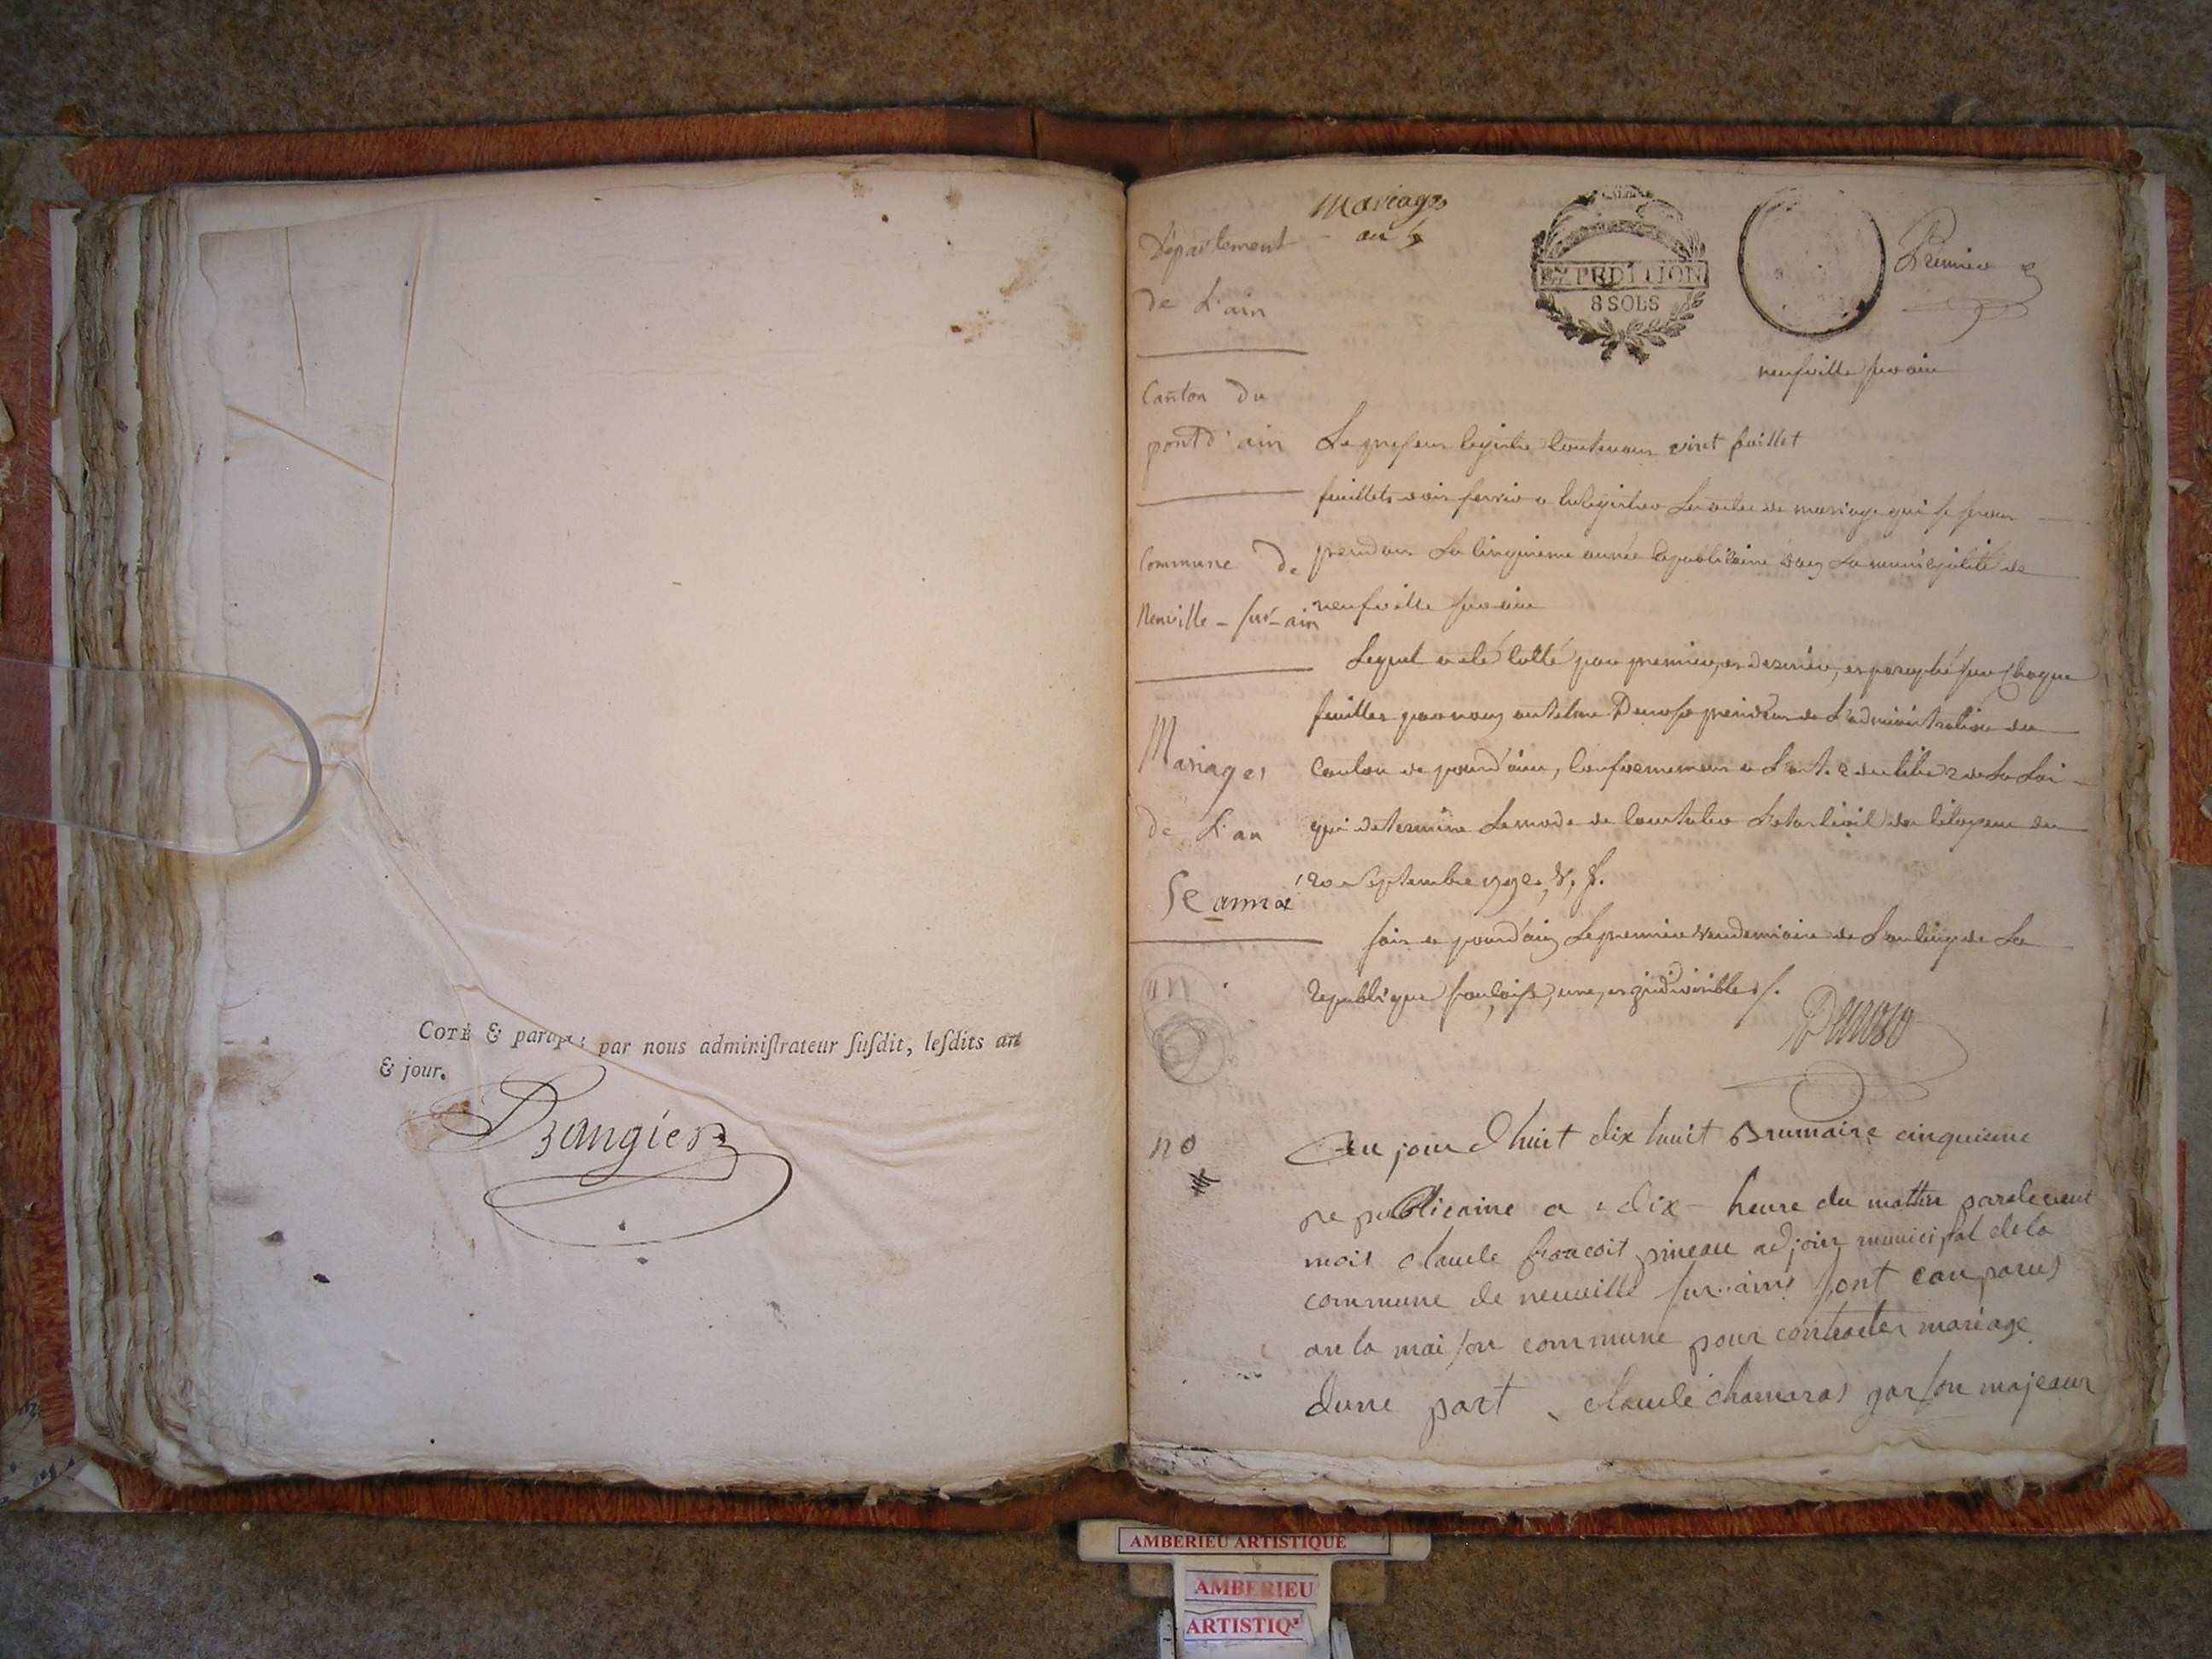 COTÉ & paraphé par nous adminiſtrateur ſuſdit, leſdits an
& jour.
Brangier
Mariages
an 5
EXPEDITION
8 SOLS
Premier
neufville sur ain
Département
de L'ain
Canton du
pont d'ain
Commune De
Neuville - sur - ain
Mariages
de L'an
5e année
Le present Registre Contenant vinct feuillet
feuillets doit servir a Enregistrer Les actes de mariage qui se feront
pendant La Cinquieme année Republicaine dans La municipalité de
neufville sur ain
Lequel a eté Cotté par premier, et dernier, et paraphé sur Chaque
feuillet par nous antelme president de L'administration du
Canton de pont d'ain, Conformement a L'art. 2 du titre 2 de La Loi
qui determine Le mode de Constater L'etat Civil des Citoyens du
20 Septembre 1792, V, S.
fait a pont d'ain Le premier Vendemiaire de L'an Cinq de La
Republique françoise, une, et indivisible.
no
Au jour d huit dix huit Brumaire cinquieme
republicaine a dix heure du mattin pardevent
moit claude francoit pineau adjoin municipal de la
commune de neuville sur ain sont comparus
an la maison commune pour contracter mariage
dune part claude chamaras garson majeaur
AMBERIEU ARTISTIQUE
AMBERIEU
ARTISTIQ